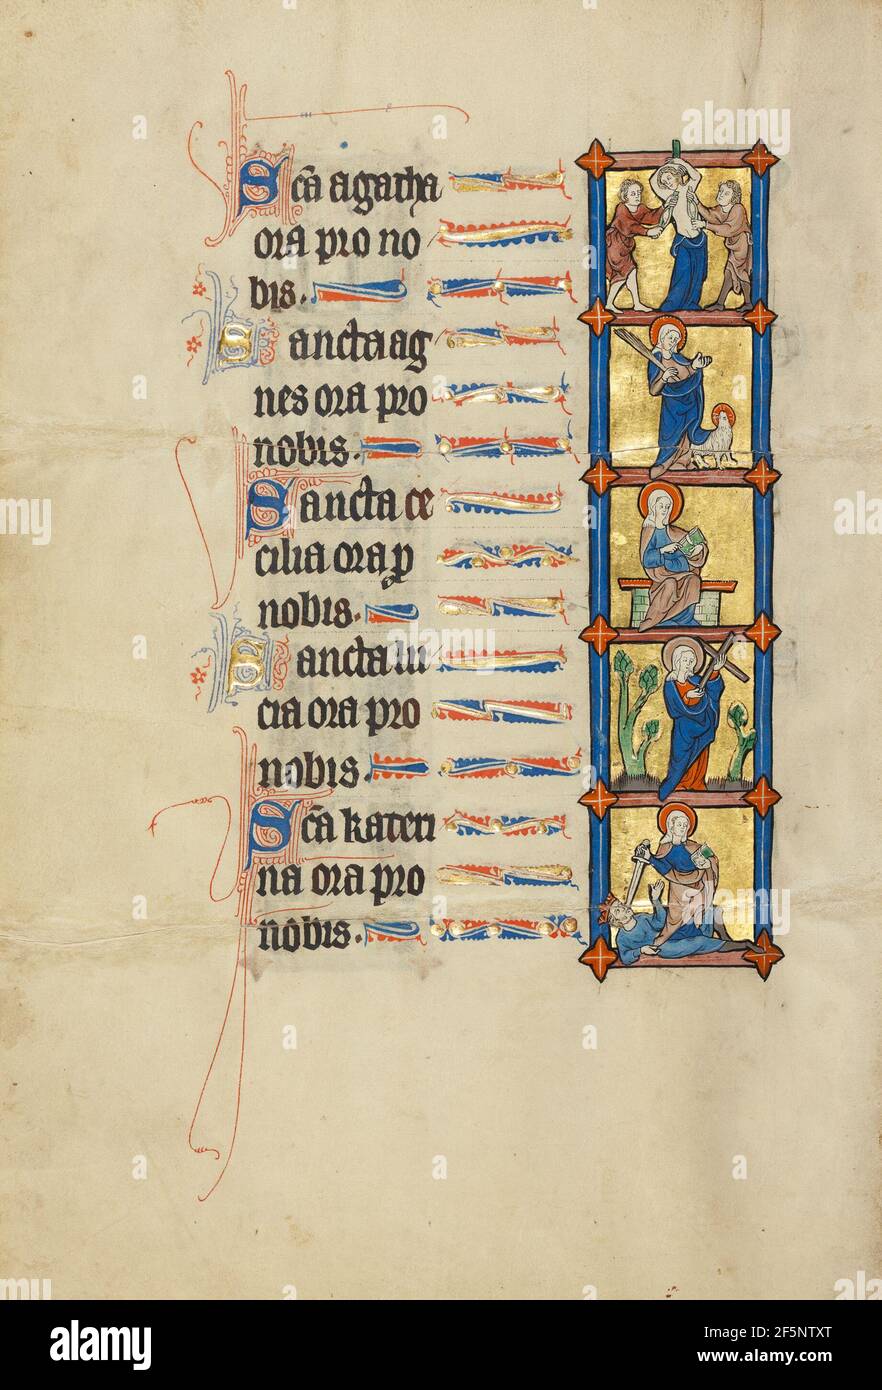 Sc̄a agatha
ora pro no
bis.
Sancta ag
nes ora pro
nobis.
Sancta ce
cilia ora ꝑ
nobis.
Sancta lu
cia ora pro
nobis.
Sc̄a kateri
na ora pro
nobis.
alamy
Image ID: 2F5NTXT
www.alamy.com